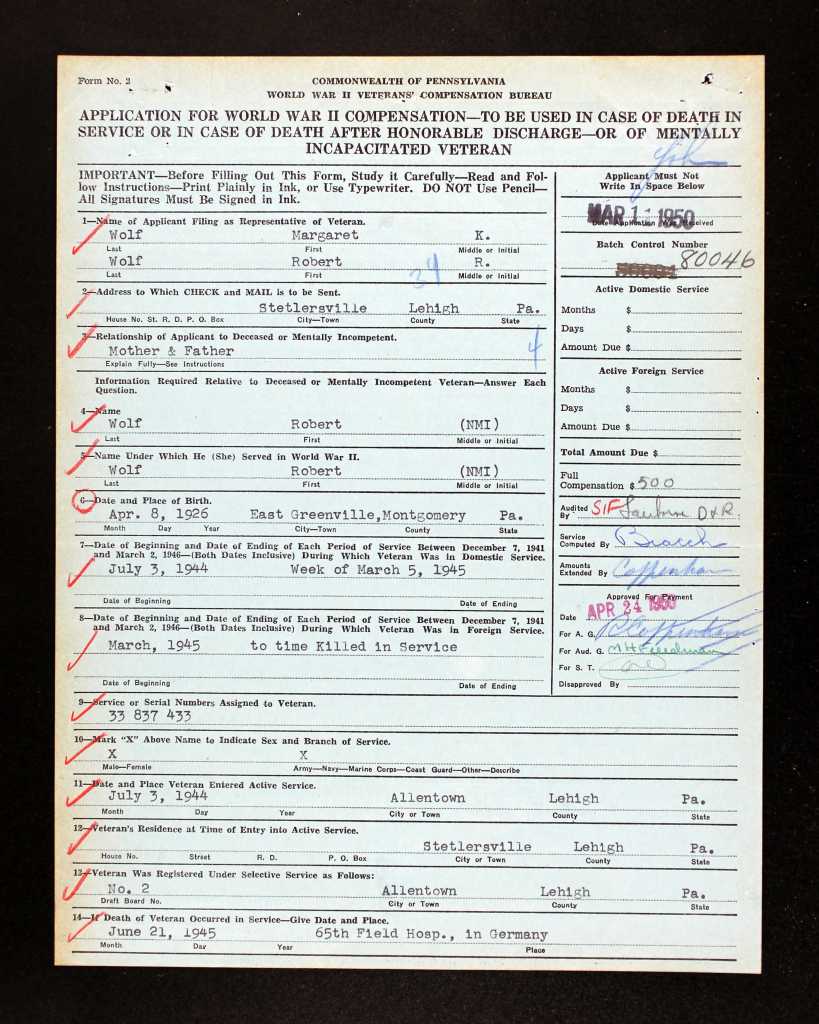 Form No. 2
COMMONWEALTH OF PENNSYLVANIA
WORLD WAR II VETERANS' COMPENSATION BUREAU
APPLICATION FOR WORLD WAR II COMPENSATION—TO BE USED IN CASE OF DEATH IN
SERVICE OR IN CASE OF DEATH AFTER HONORABLE DISCHARGE—OR OF MENTALLY
INCAPACITATED VETERAN
IMPORTANT—Before Filling Out This Form, Study it Carefully—Read and Fol-
low Instructions—Print Plainly in Ink, or Use Typewriter. DO NOT Use Pencil—
All Signatures Must Be Signed in Ink.
1—Name of Applicant Filing as Representative of Veteran.
Wolf Margaret K.
Last First Middle or Initial
Wolf Robert R.
Last First Middle or Initial
34
2—Address to Which CHECK and MAIL is to be Sent.
Stetlersville Lehigh Pa.
House No. St. R. D. P. O. Box City—Town County State
3—Relationship of Applicant to Deceased or Mentally Incompetent.
Mother & Father
4
Explain Fully—See Instructions
Information Required Relative to Deceased or Mentally Incompetent Veteran—Answer Each
Question.
4—Name
Wolf Robert (NMI)
Last First Middle or Initial
5—Name Under Which He (She) Served in World War II.
Wolf Robert (NMI)
Last First Middle or Initial
6—Date and Place of Birth.
Apr. 8, 1926 East Greenville,Montgomery Pa.
Month Day Year City—Town County State
7—Date of Beginning and Date of Ending of Each Period of Service Between December 7, 1941
and March 2, 1946—(Both Dates Inclusive) During Which Veteran Was in Domestic Service.
July 3, 1944 Week of March 5, 1945
Date of Beginning Date of Ending
8—Date of Beginning and Date of Ending of Each Period of Service Between December 7, 1941
and March 2, 1946—(Both Dates Inclusive) During Which Veteran Was in Foreign Service.
March, 1945 to time Killed in Service
Date of Beginning Date of Ending
Applicant Must Not
Write In Space Below
MAR 1 1950
Date Application Was Received
Batch Control Number
80046
Active Domestic Service
Months $
Days $
Amount Due $
Active Foreign Service
Months $
Days $
Amount Due $
Total Amount Due $
Full
Compensation $ 500
Audited
By SIF D&R
Service
Computed By
Amounts
Extended By Coppenhan
Approved For Payment
Date APR 24 1950
For A. G.
For Aud. G. M H Freedman
For S. T.
Disapproved By
9—Service or Serial Numbers Assigned to Veteran.
33 837 433
10—Mark "X" Above Name to Indicate Sex and Branch of Service.
X X
Male—Female Army—Navy—Marine Corps—Coast Guard—Other—Describe
11—Date and Place Veteran Entered Active Service.
July 3, 1944 Allentown Lehigh Pa.
Month Day Year City or Town County State
12—Veteran's Residence at Time of Entry into Active Service.
Stetlersville Lehigh Pa.
House No. Street R. D. P. O. Box City or Town County State
13—Veteran Was Registered Under Selective Service as Follows:
No. 2 Allentown Lehigh Pa.
Draft Board No. City or Town County State
14—If Death of Veteran Occurred in Service—Give Date and Place.
June 21, 1945 65th Field Hosp., in Germany
Month Day Year Place